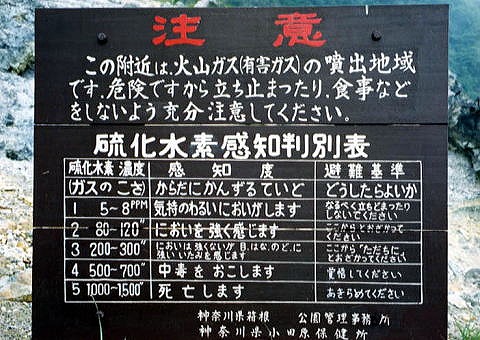 注意
この附近は、火山ガス(有害ガス)の噴出地域
です、危険ですから立ち止まったり、食事など
をしないよう充分注意してください。
硫化水素感知判別表
硫化水素濃度 感知度 避難基準
(ガスのこさ) からだにかんずるていど どうしたらよいか
1 5~8PPM 気持のわるいにおいがします なるべく立ちどまったり
しないでください
2 80-120" においを強く感じます ここからとおざかって
ください
3 200-300" においは強くないが目、はな、のど、に
強いいたみを感じます ここから"ただちに"
とおざかってください
4 500-700" 中毒をおこします 覚悟してください
5 1,000-1,500" 死亡します あきらめてください
神奈川県箱根 公園管理事務所
神奈川県小田原保健所